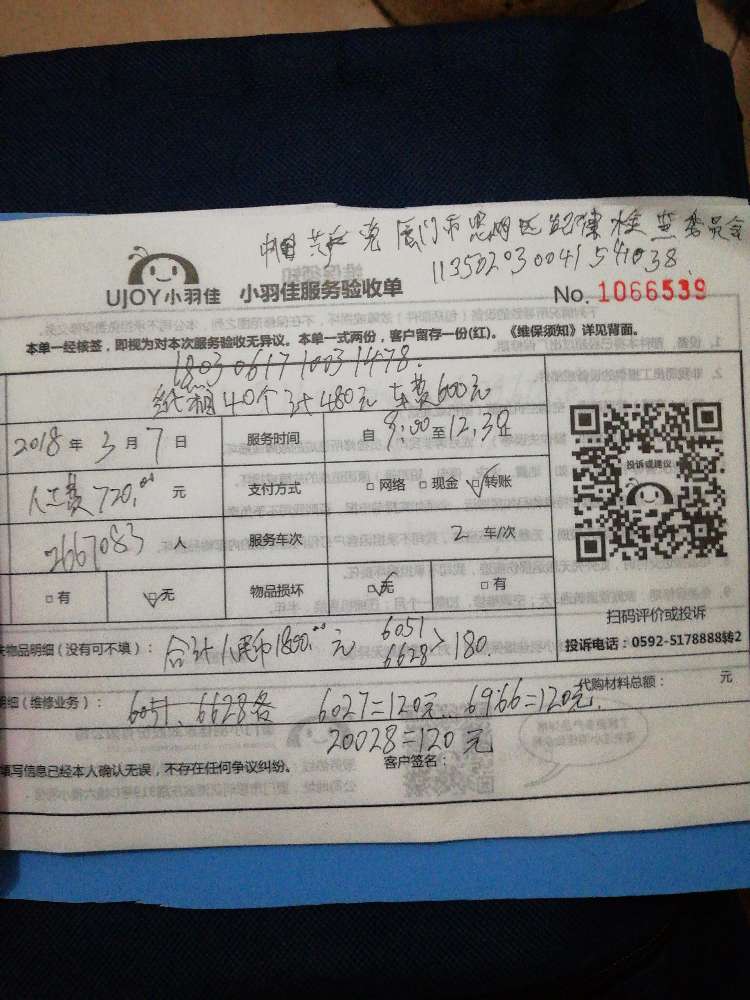 中国共产党厦门市思明区纪律检查委员会
11350203004154038
UJOY小羽佳 小羽佳服务验收单
No. 1066539
本单一经核签，即视为对本次服务验收无异议。本单一式两份，客户留存一份(红)。《维保须知》详见背面。
180306171003 1478.
纸箱40个计480元 车费600元
2018年3月7日 服务时间 自9:00至12:30止
人工费720.00元 支付方式 □网络 □现金 ☑转账
2667083人 服务车次 2车/次
□有 ☑无 物品损坏 ☑无 □有
投诉或建议
扫码评价或投诉
投诉电话：0592-5178888转2
物品明细（没有可不填）： 合计人民币1800.00元 6051 6628 > 180.
代购材料总额： 元
明细（维修业务）： 6051、6628各 6027=120元、6966=120元
20028=120元
填写信息已经本人确认无误，不存在任何争议纠纷。 客户签名：